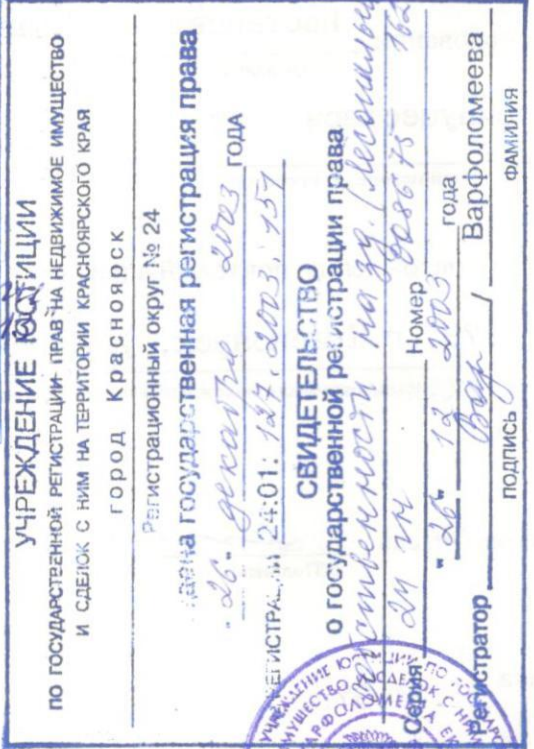 УЧРЕЖДЕНИЕ ЮСТИЦИИ
ПО ГОСУДАРСТВЕННОЙ РЕГИСТРАЦИИ ПРАВ НА НЕДВИЖИМОЕ ИМУЩЕСТВО
И СДЕЛОК С НИМ НА ТЕРРИТОРИИ КРАСНОЯРСКОГО КРАЯ
город Красноярск
Регистрационный округ № 24
дена государственная регистрация права
"26" декабря 2003 ГОДА
РЕГИСТРАЦИИ 24:01: 127.2003:157
СВИДЕТЕЛЬСТВО
о государственной регистрации права
собственности на зд.
Серия 24 гн Номер 008675
"26" 12 2003 года
Регистратор Вар / Варфоломеева
подпись ФАМИЛИЯ
УЧРЕЖДЕНИЕ ЮСТИЦИИ ПО ГОСУДАР
ИМУЩЕСТВО И СДЕЛОК С НИМ
ВАРФОЛОМЕЕВА